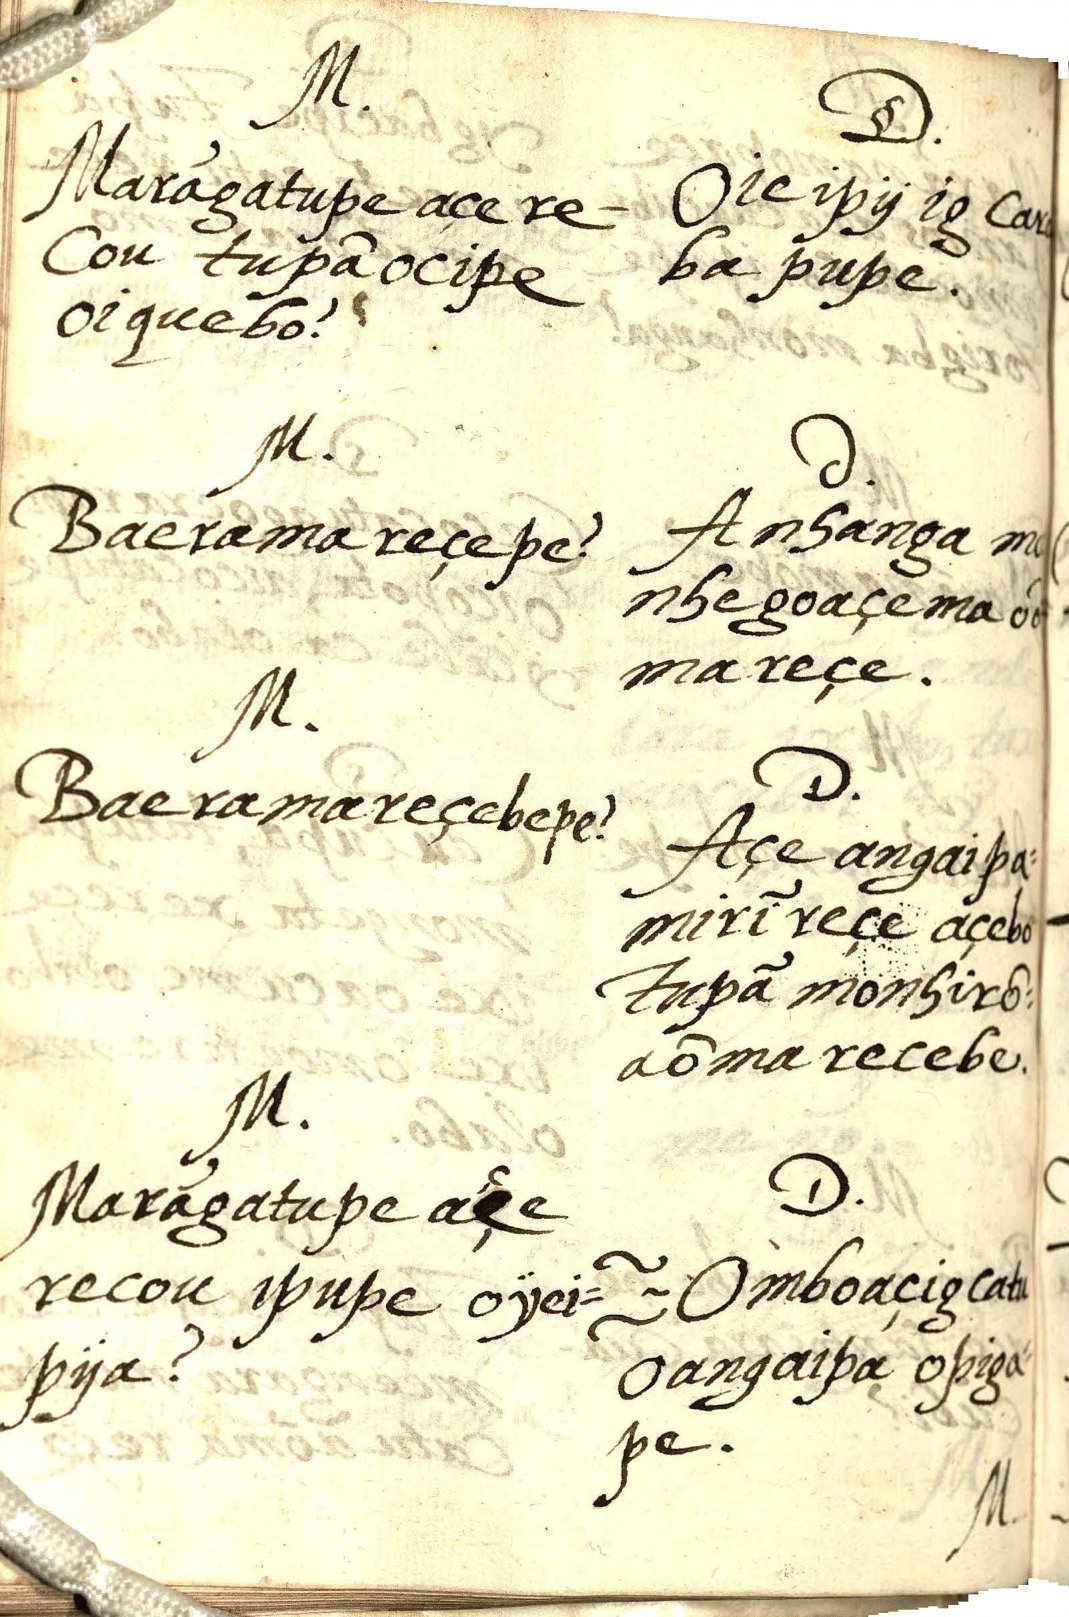 M.
Marãgatupe açe re-
cou tupã ocipe
oiquebo?
D.
Oieipÿ ig cara
ba pupe.
M.
Baerama reçepe?
D.
Anhanga mo
nhegoaçema oõ
ma reçe.
M.
Baeramareçebepe?
D.
Açe angaipa=
mirĩ reçe açebo
tupã monhirõ=
aõma recebe.
M.
Marãgatupe açe
recou ipupe oÿei=
pÿa?
D.
Omboaçigcatu
oangaipa opigá
pe.
M.